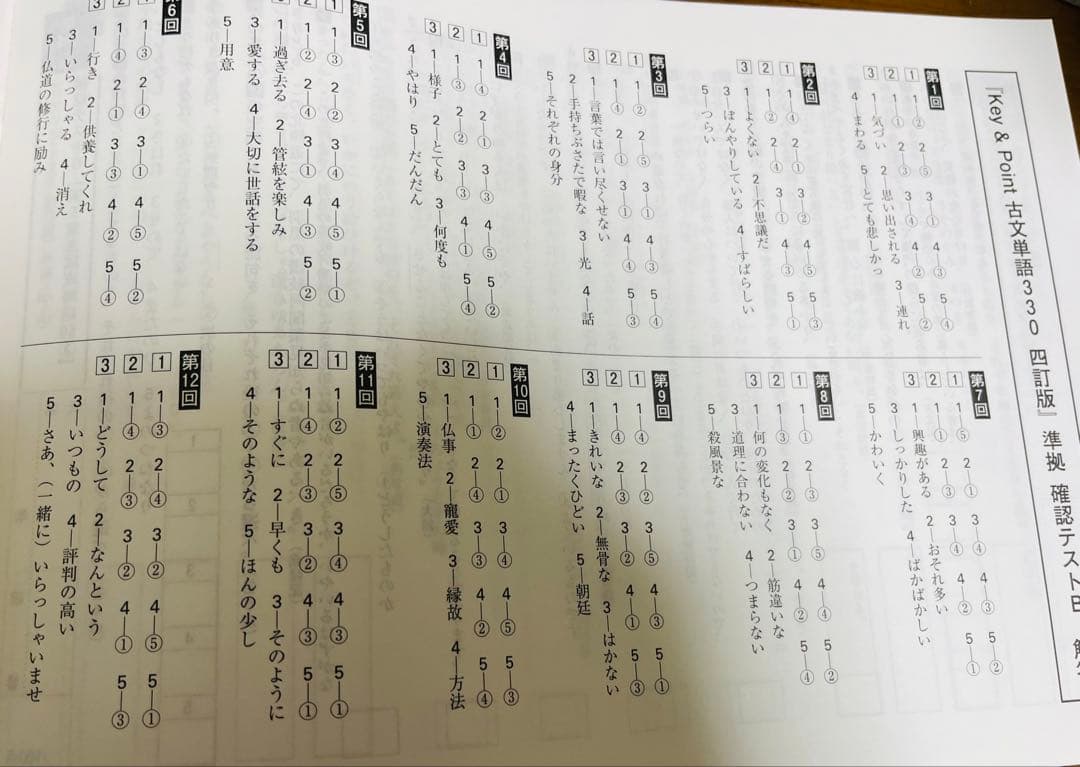 『Key & Point 古文単語330 四訂版』 準拠 確認テストB
第1回
1 1―② 2―⑤ 3―① 4―③ 5―④
2 1―① 2―③ 3―④ 4―② 5―②
3 1―気づい 2―思い出される 3―連れ
4―まわる 5―とても悲しかっ
第2回
1 1―④ 2―① 3―② 4―⑤ 5―③
2 1―② 2―④ 3―① 4―③ 5―①
3 1―よくない 2―不思議だ
3―ぼんやりしている 4―すばらしい
5―つらい
第3回
1 1―② 2―⑤ 3―① 4―③ 5―④
2 1―④ 2―① 3―① 4―④ 5―③
3 1―言葉では言い尽くせない
2―手持ちぶさたで暇な 3―光 4―話
5―それぞれの身分
第4回
1 1―④ 2―① 3―③ 4―⑤ 5―②
2 1―③ 2―② 3―③ 4―① 5―④
3 1―様子 2―とても 3―何度も
4―やはり 5―だんだん
第5回
1 1―③ 2―② 3―④ 4―⑤ 5―①
2 1―② 2―④ 3―① 4―③ 5―②
3 1―過ぎ去る 2―管絃を楽しみ
3―愛する 4―大切に世話をする
5―用意
第6回
1 1―③ 2―④ 3―① 4―⑤ 5―②
2 1―④ 2―① 3―③ 4―② 5―④
3 1―行き 2―供養してくれ
3―いらっしゃる 4―消え
5―仏道の修行に励み
第7回
1 1―⑤ 2―① 3―④ 4―③ 5―②
2 1―① 2―③ 3―④ 4―② 5―①
3 1―興趣がある 2―おそれ多い
3―しっかりした 4―ばかばかしい
5―かわいく
第8回
1 1―① 2―③ 3―⑤ 4―④ 5―②
2 1―③ 2―② 3―① 4―② 5―④
3 1―何の変化もなく 2―筋違いな
3―道理に合わない 4―つまらない
5―殺風景な
第9回
1 1―④ 2―② 3―⑤ 4―③ 5―①
2 1―④ 2―③ 3―② 4―① 5―③
3 1―きれいな 2―無骨な 3―はかない
4―まったくひどい 5―朝廷
第10回
1 1―② 2―① 3―④ 4―⑤ 5―③
2 1―① 2―④ 3―③ 4―② 5―④
3 1―仏事 2―寵愛 3―縁故 4―方法
5―演奏法
第11回
1 1―② 2―⑤ 3―④ 4―③ 5―①
2 1―④ 2―③ 3―② 4―③ 5―①
3 1―すぐに 2―早くも 3―そのように
4―そのような 5―ほんの少し
第12回
1 1―③ 2―④ 3―② 4―⑤ 5―①
2 1―④ 2―③ 3―② 4―① 5―③
3 1―どうして 2―なんという
3―いつもの 4―評判の高い
5―さあ、（一緒に）いらっしゃいませ